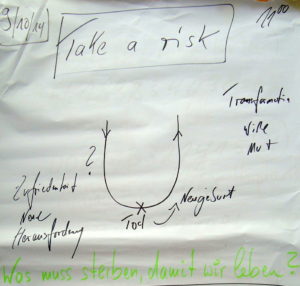 9/10/14
11:00
Take a risk
Transformation
Wille
Mut
?
Zufriedenheit
Neue
Herausforderung
Tod
Neugeburt
Was muss sterben, damit wir leben?